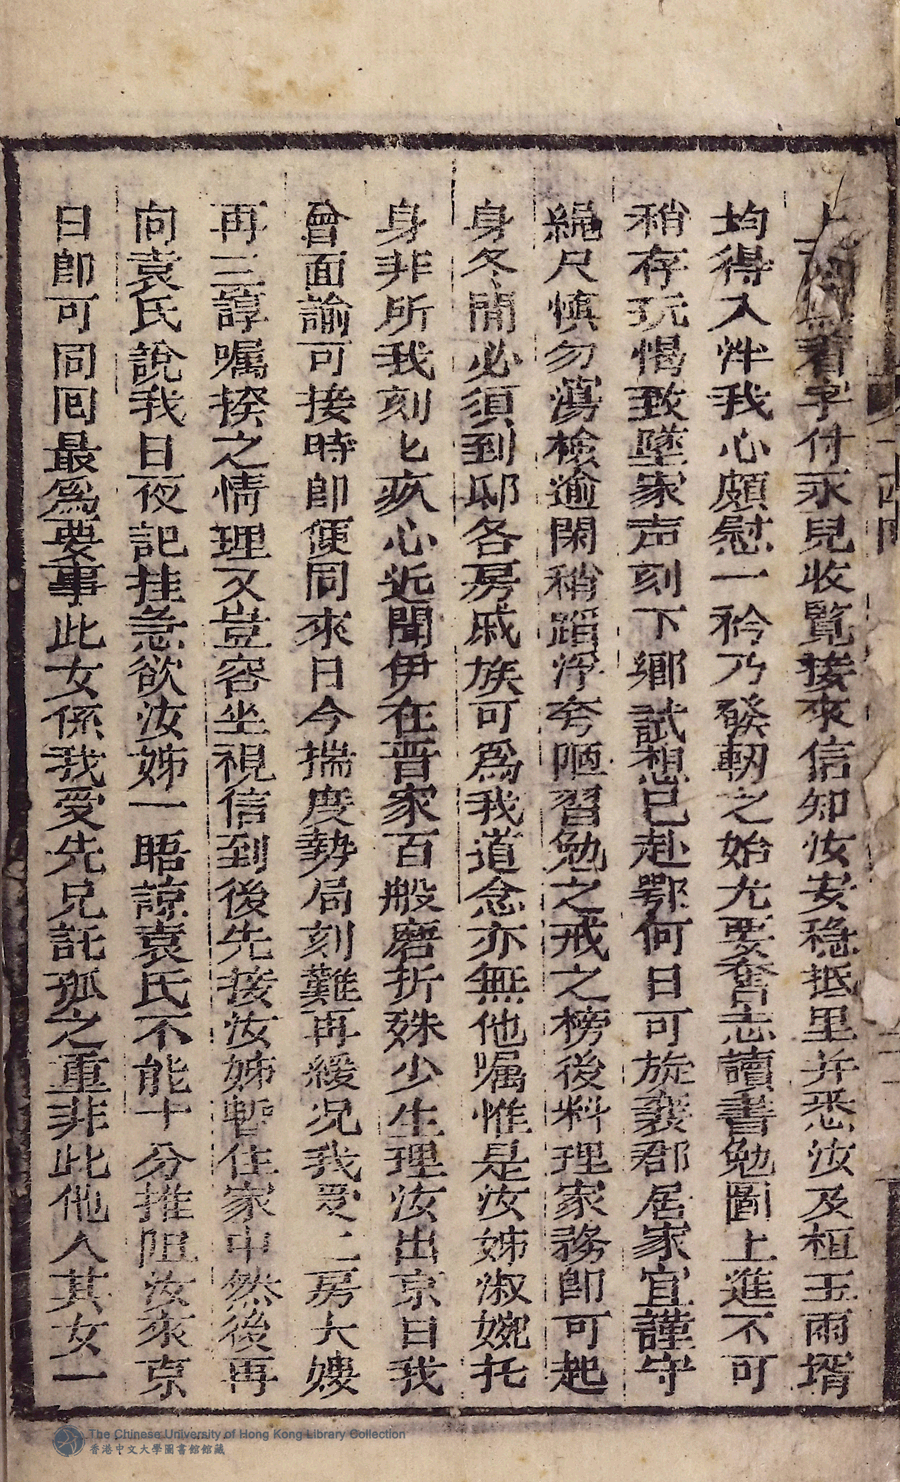 上看字付永兒收覧接來信知汝安穏抵里并悉汝及桓玉兩壻
均得入泮我心頗慰一衿乃發軔之始尤要奮志讀書勉圖上進不可
稍存玩愒致墜家声刻下鄉試想已赴鄂何日可旋襄郡居家宜謹守
繩尺慎勿蕩檢逾閑稍蹈浮夸陋習勉之戒之榜後料理家務即可起
身冬間必須到邸各房戚族可為我道念亦無他嘱惟是汝姊淑婉托
身非所我刻匕疚心近聞伊在晋家百般磨折殊少生理汝出京日我
曾面諭可接時即便同來日今揣度勢局刻難再緩况我受二房大嫂
再三諄嘱揆之情理又豈容坐視信到後先接汝姊暫住家中然後再
向袁氏說我日夜記挂急欲汝姊一晤諒袁氏不能十分推阻汝來京
日即可同回最爲要事此女係我受先兄託孤之重非此他人其女一
The Chinese University of Hong Kong Library Collection
香港中文大學圖書館館藏